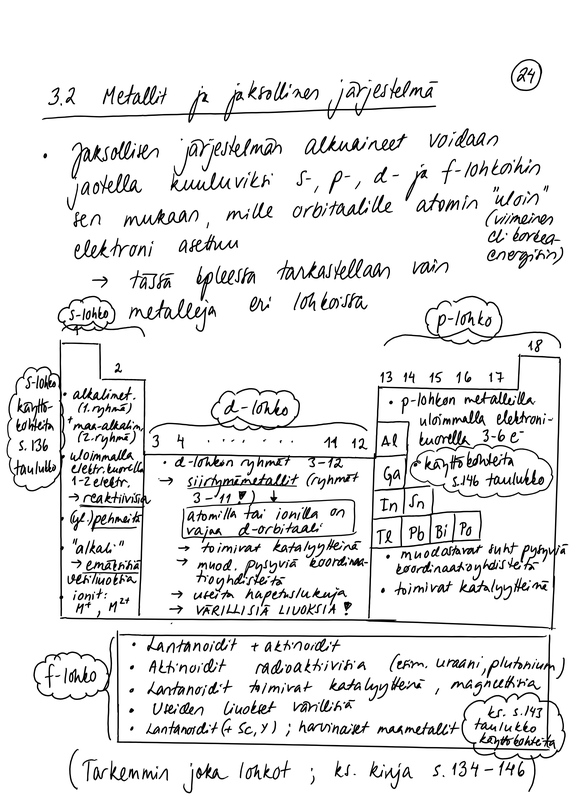 24
3.2 Metallit ja jaksollinen järjestelmä
• Jaksollisen järjestelmän alkuaineet voidaan
jaotella kuuluviksi s-, p-, d- ja f-lohkoihin
sen mukaan, mille orbitaalille atomin "uloin"
(viimeinen
eli korkea-
energisin)
elektroni asettuu
→ tässä kpleessa tarkastellaan vain
metalleja eri lohkoissa
s-lohko
1
2
s-lohko
käyttö-
kohteita
s. 136
taulukko
• alkalimet.
(1. ryhmä)
+ maa-alkalim.
(2. ryhmä)
• uloimmalla
elektr.kuorella
1-2 elektr.
→ reaktiivisia
• (yl.) pehmeitä
• "alkali"
→ emäksisiä
vesiliuoksia
• ionit:
M⁺, M²⁺
d-lohko
3 4 . . . . . . . 11 12
• d-lohkon ryhmät 3-12
→ siirtymämetallit (ryhmät
3-11!)
atomilla tai ionilla on
vajaa d-orbitaali
→ toimivat katalyytteinä
→ muod. pysyviä koordinaa-
tioyhdisteitä
→ useita hapetuslukuja
→ VÄRILLISIÄ LIUOKSIA !
p-lohko
18
13 14 15 16 17
• p-lohkon metalleilla
uloimmalla elektroni-
kuorella 3-6 e⁻
• käyttökohteita
s. 146 taulukko
Al
Ga
In Sn
Tl Pb Bi Po
• muodostavat suht pysyviä
koordinaatioyhdisteitä
• toimivat katalyytteinä
f-lohko
• Lantanoidit + aktinoidit
• Aktinoidit radioaktiivisia (esim. uraani, plutonium)
• Lantanoidit toimivat katalyytteinä, magneettisia
• Useiden liuokset värillisiä
• Lantanoidit (+ Sc, Y) ; harvinaiset maametallit
ks. s. 143
taulukko
käyttökohteita
(Tarkemmin joka lohkot ; ks. kirja s. 134-146)